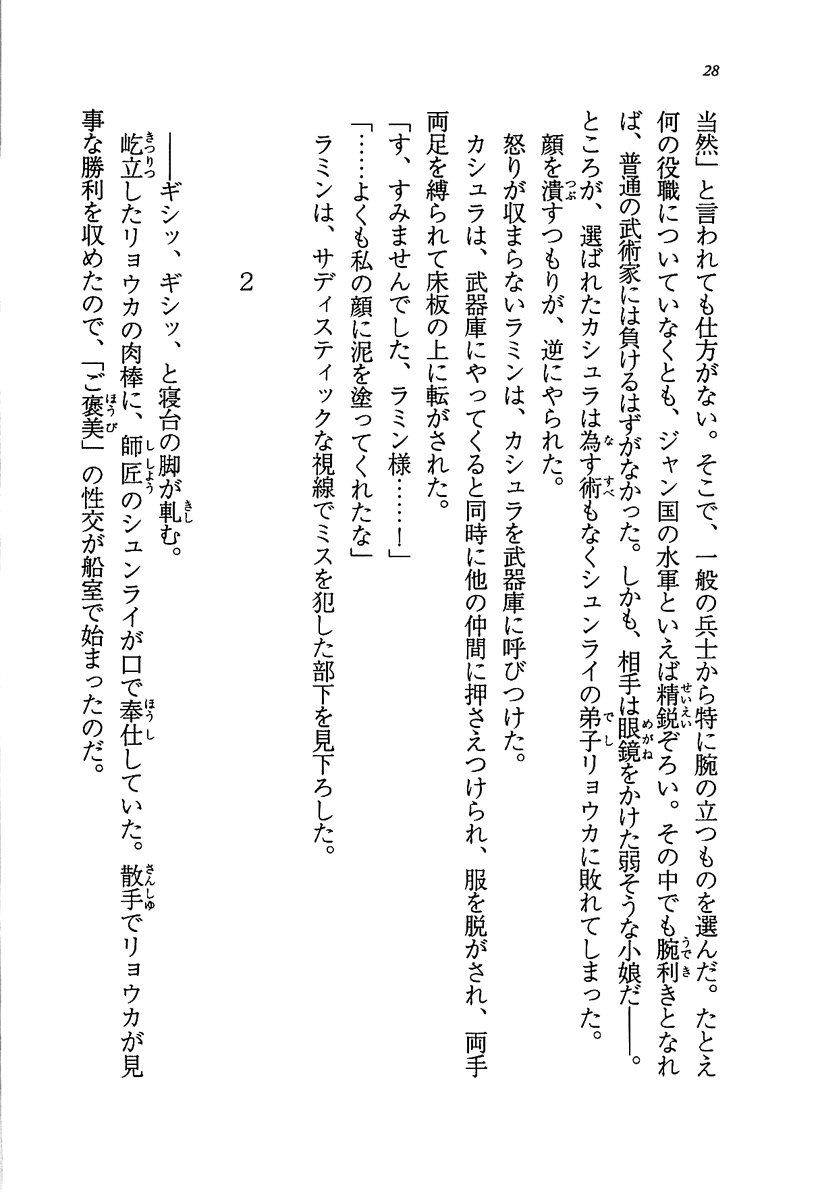 28
当然」と言われても仕方がない。そこで、一般の兵士から特に腕の立つものを選んだ。たとえ
何の役職についていなくとも、ジャン国の水軍といえば精鋭ぞろい。その中でも腕利きとなれ
ば、普通の武術家には負けるはずがなかった。しかも、相手は眼鏡をかけた弱そうな小娘だ――。
ところが、選ばれたカシュラは為す術もなくシュンライの弟子リョウカに敗れてしまった。
顔を潰すつもりが、逆にやられた。
怒りが収まらないラミンは、カシュラを武器庫に呼びつけた。
カシュラは、武器庫にやってくると同時に他の仲間に押さえつけられ、服を脱がされ、両手
両足を縛られて床板の上に転がされた。
「す、すみませんでした、ラミン様……！」
「……よくも私の顔に泥を塗ってくれたな」
ラミンは、サディスティックな視線でミスを犯した部下を見下ろした。
2
――ギシッ、ギシッ、と寝台の脚が軋む。
屹立したリョウカの肉棒に、師匠のシュンライが口で奉仕していた。散手でリョウカが見
事な勝利を収めたので、「ご褒美」の性交が船室で始まったのだ。